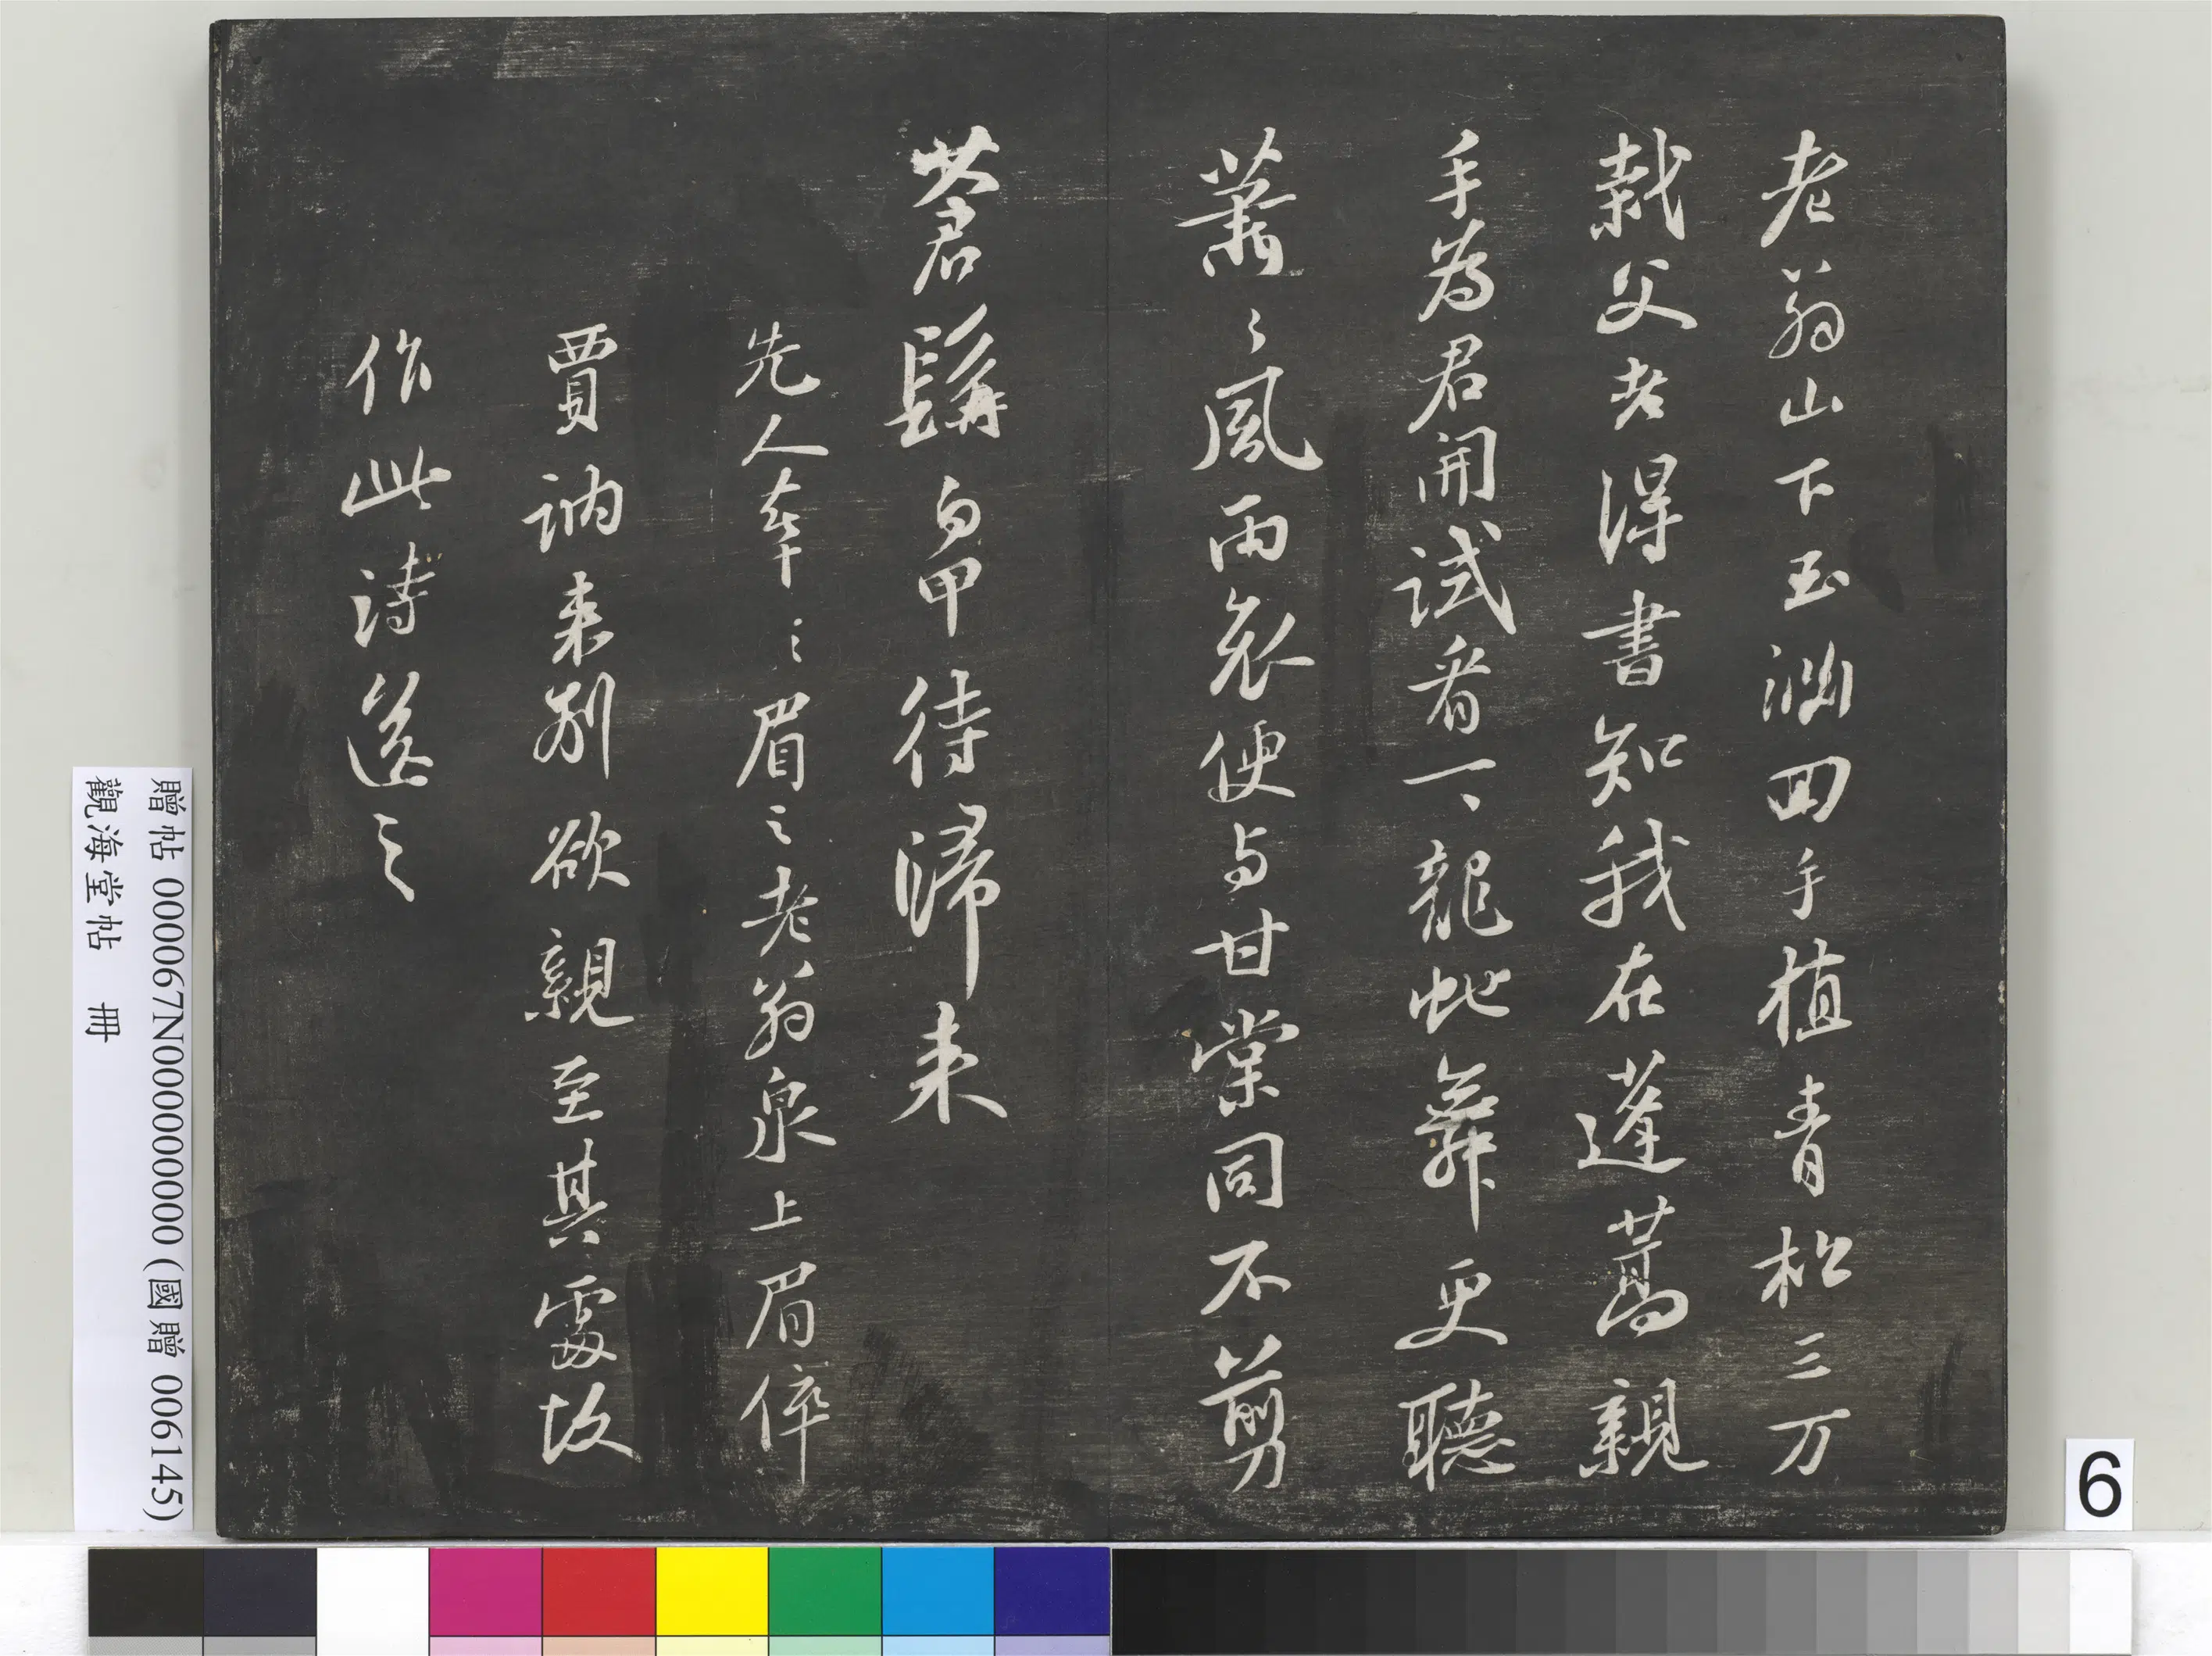 老翁山下玉淵回手植青松三万
栽父老得書知我在蓬蒿親
手為君開試看一、龍蛇舞更聽
蕭〻風雨哀便与甘棠同不剪
蒼髯白甲待歸来
先人葬之眉之老翁泉上眉倅
賈訥来別欲親至其處故
作此詩送之
贈帖 000067N000000000 (國贈 006145)
觀海堂帖 冊
6